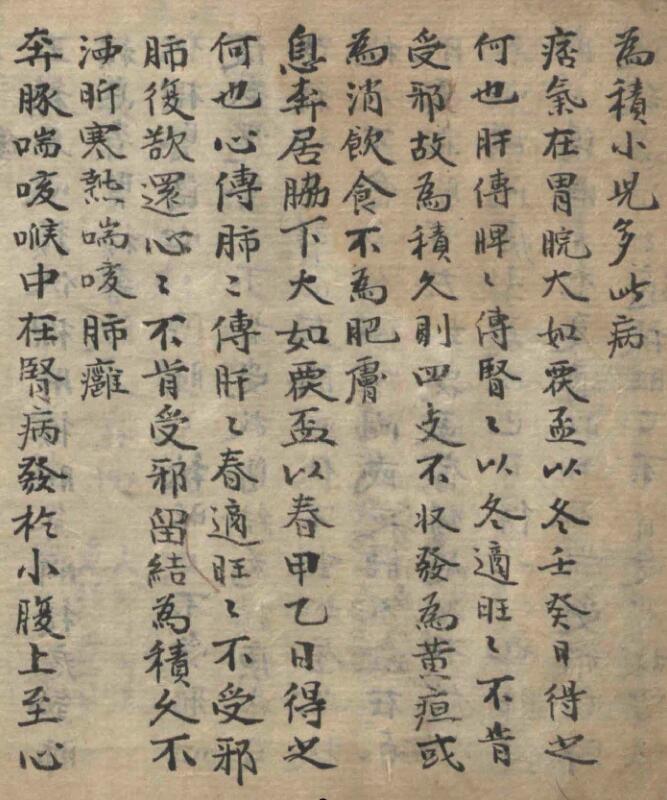 為積小児多此病
痞氣在胃脘大如覆盃以冬壬癸日得之
何也肝傳脾〻傳腎〻以冬適旺〻不肯
受邪故為積久則四支不收發為黄疸或
為消飲食不為肥膚
息奔居脇下大如覆盃以春甲乙日得之
何也心傳肺〻傳肝〻春適旺〻不受邪
肺復欲還心〻不肯受邪留結為積久不
洒淅寒熱喘咳肺癰
奔豚喘咳喉中在腎病發於小腹上至心